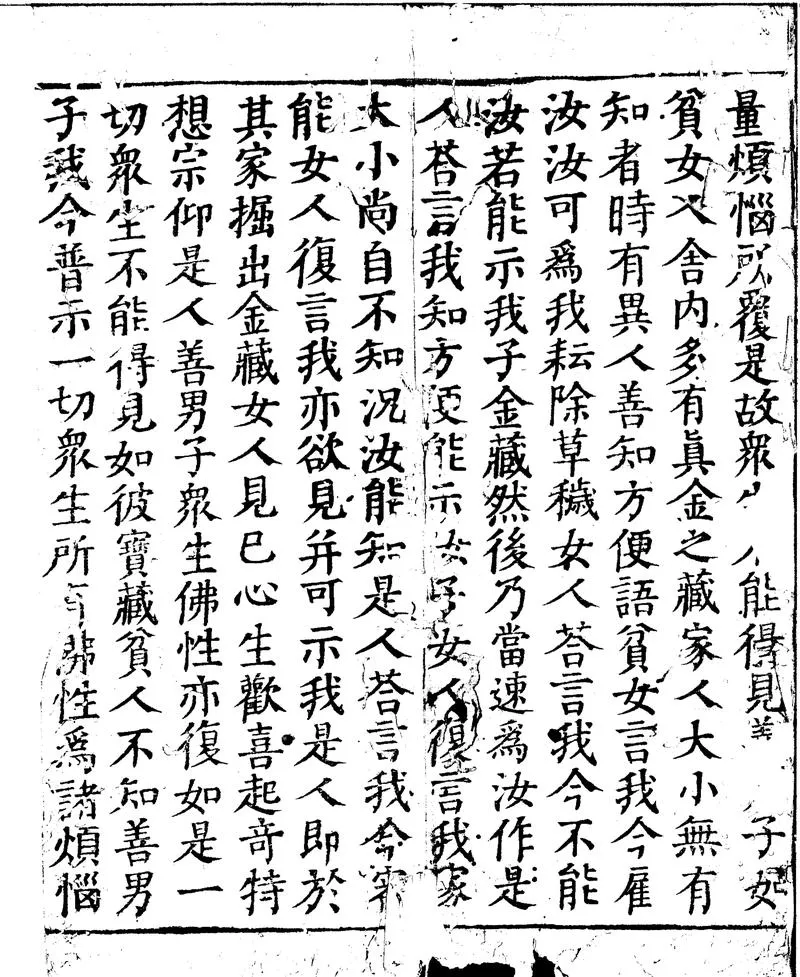 量煩惱所覆是故衆能得見善子如
貧女人舍内多有眞金之藏家人大小無有
知者時有異人善知方便語貧女言我今雇
汝汝可爲我耘除草穢女人荅言我今不能
汝若能示我子金藏然後乃當速爲汝作是
人荅言我知方便能示汝子女人復言我家
大小尚自不知况汝能知是人荅言我今審
能女人復言我亦欲見并可示我是人即於
其家掘出金藏女人見已心生歡喜起奇特
想宗仰是人善男子衆生佛性亦復如是一
切衆生不能得見如彼寶藏貧人不知善男
子我今普示一切衆生所有佛性爲諸煩惱